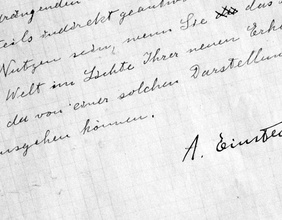 drängenden
teils indirekt geantwo
Nutzen sein, wenn Sie das
Welt im Lichte Ihrer neuen Erke
da von einer solchen Darstellun
ausgehen können.
A. Einste